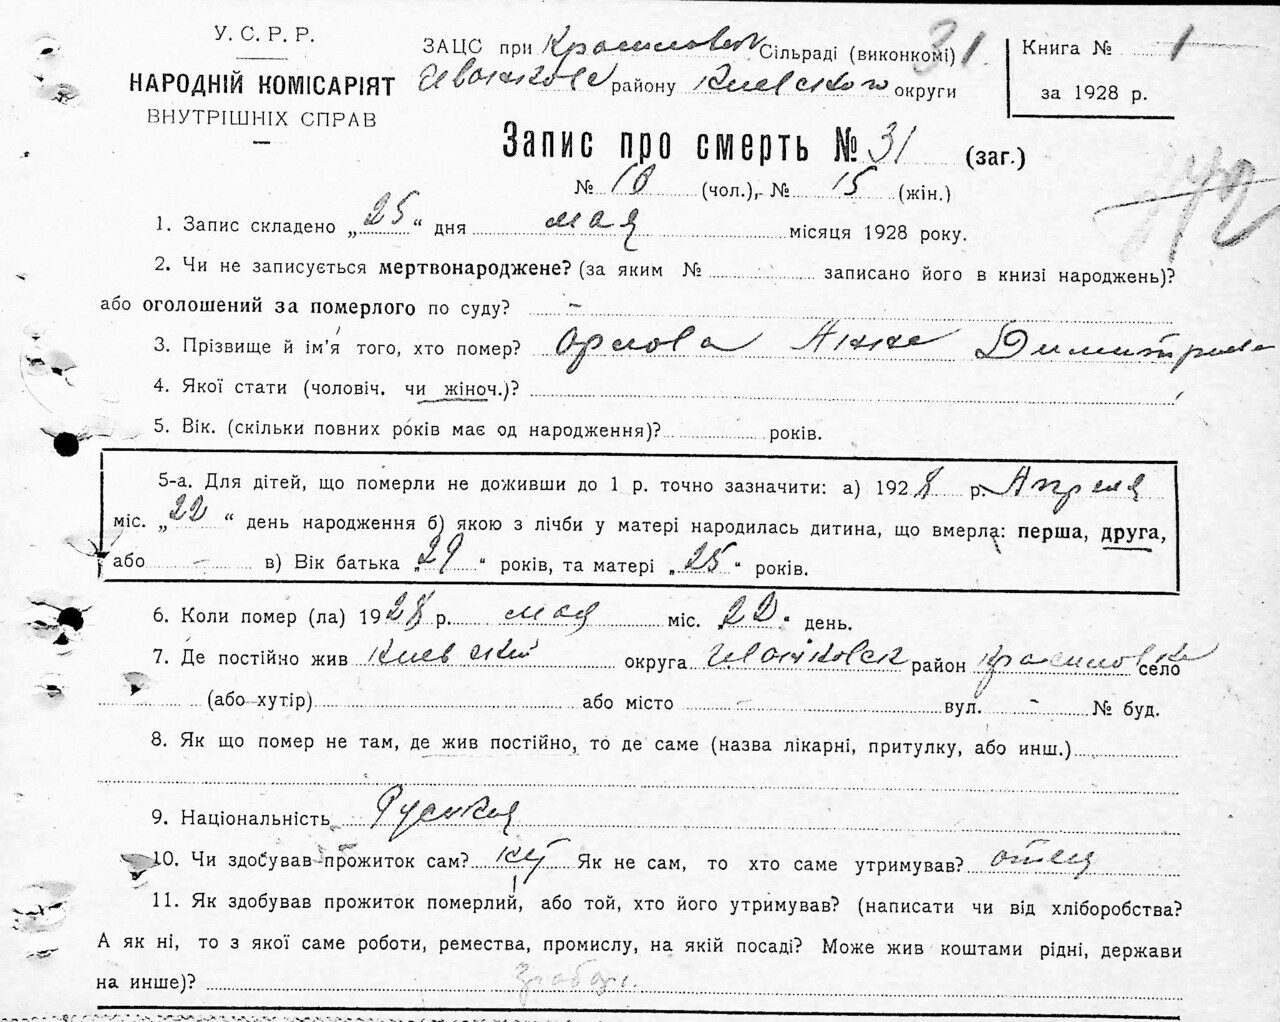 У. С. Р. Р.
НАРОДНІЙ КОМІСАРІЯТ
ВНУТРІШНІХ СПРАВ
ЗАЦС при Сільраді (виконкомі) 31.
району Киевского округи
Книга № 1
за 1928 р.
Запис про смерть № 31 (заг.)
№ 16 (чол.), № 15 (жін.)
1. Запис складено „25“ дня мая місяця 1928 року.
2. Чи не записується мертвонароджене? (за яким № записано його в книзі народжень)?
або оголошений за померлого по суду? –
3. Прізвище й ім’я того, хто помер? Орлова Анна Димитриева
4. Якої стати (чоловіч. чи жіноч.)?
5. Вік. (скільки повних років має од народження)? років.
5-а. Для дітей, що померли не доживши до 1 р. точно зазначити: а) 1928 р. Апреля
міс. „22“ день народження б) якою з лічби у матері народилась дитина, що вмерла: перша, друга,
або – в) Вік батька „29“ років, та матері „25“ років.
6. Коли помер (ла) 1928 р. мая міс. 22 день.
7. Де постійно жив Киевский округа район село
(або хутір) або місто – вул. – № буд.
8. Як що помер не там, де жив постійно, то де саме (назва лікарні, притулку, або инш.)
9. Національність Руская
10. Чи здобував прожиток сам? Як не сам, то хто саме утримував? отец
11. Як здобував прожиток померлий, або той, хто його утримував? (написати чи від хліборобства?
А як ні, то з якої саме роботи, ремества, промислу, на якій посаді? Може жив коштами рідні, держави
на инше)?